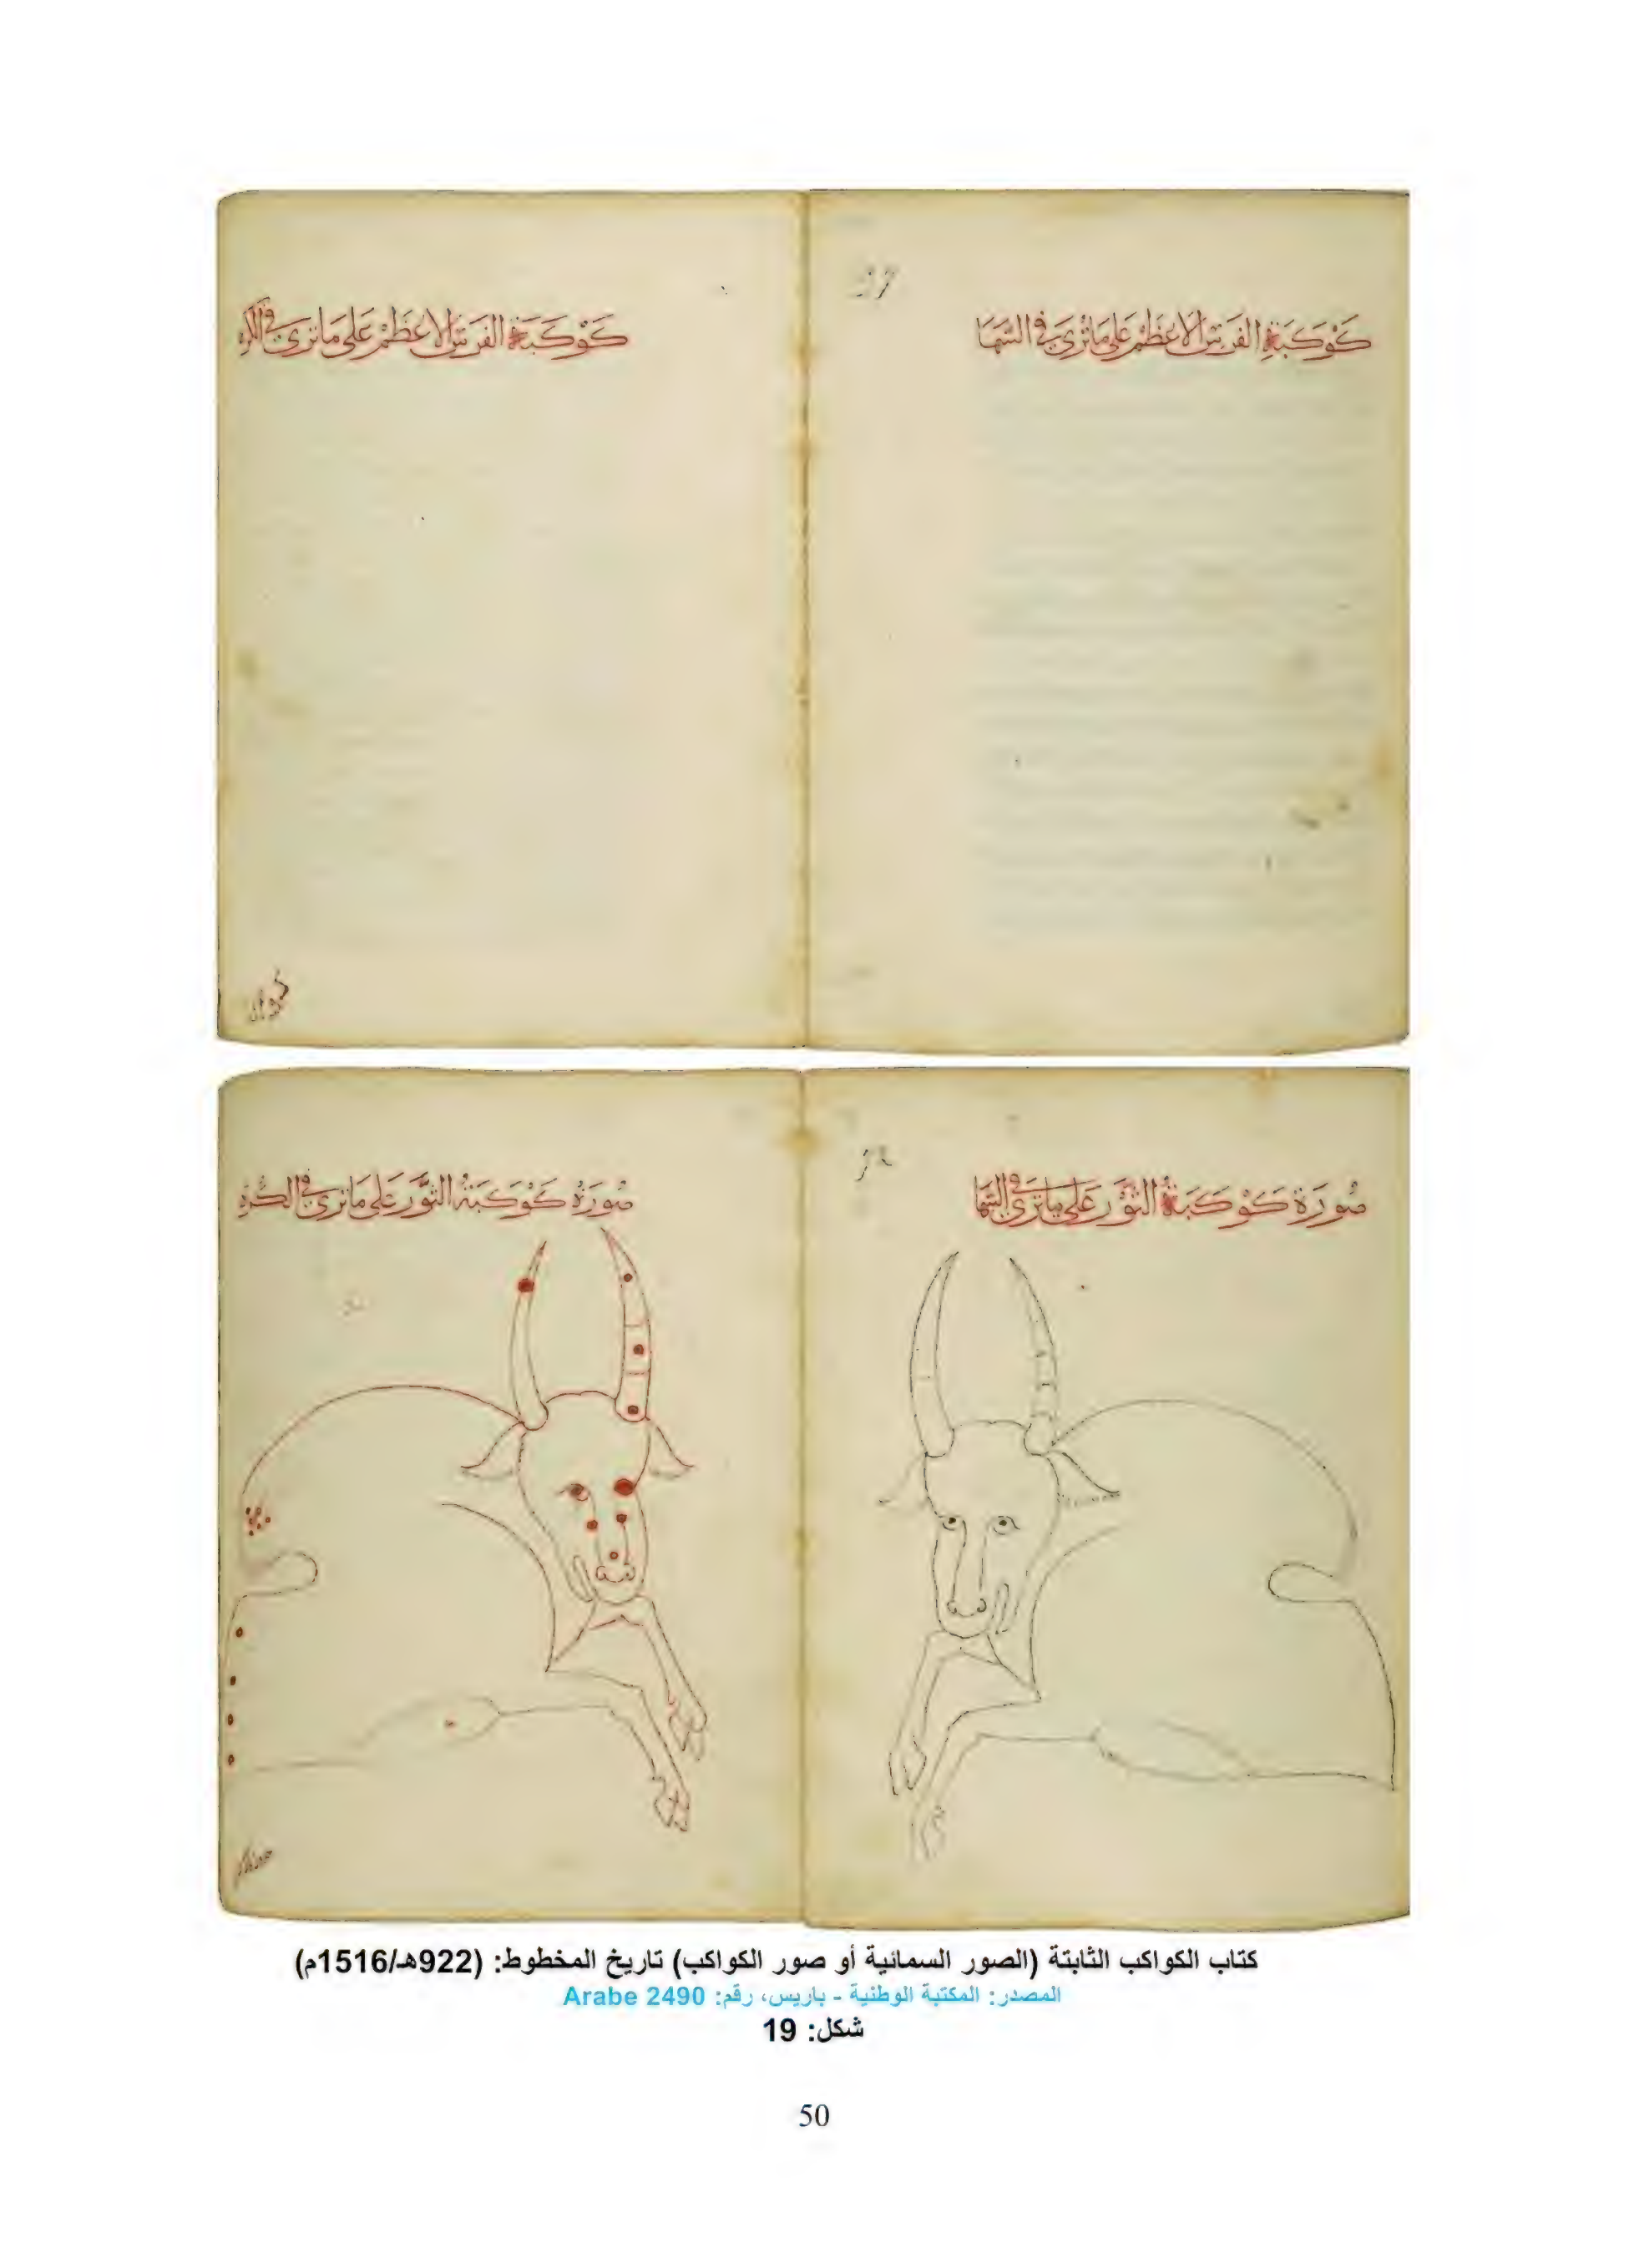 كَوْكَبَة الفَرَسِ الاعظَم عَلى مَا تُرى فِي السَّمَا
كَوْكَبَة الفَرَسِ الاعظَم عَلى مَا تُرى فِي الكره
صُورَة كَوْكَبَة الثَّوْر عَلى مَا تَرى فِي السَّمَا
صُورَة كَوْكَبَة الثَّوْر عَلى مَا تَرى فِي الكُرَة
كتاب الكواكب الثابتة (الصور السمائية أو صور الكواكب) تاريخ المخطوط: (922هـ/1516م)
المصدر: المكتبة الوطنية - باريس، رقم: Arabe 2490
شكل: 19
50